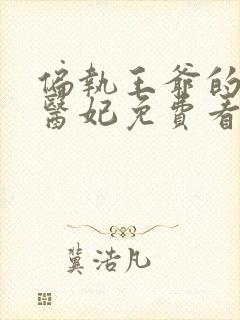 偏執王爺的
醫妃免費看
冀浩凡